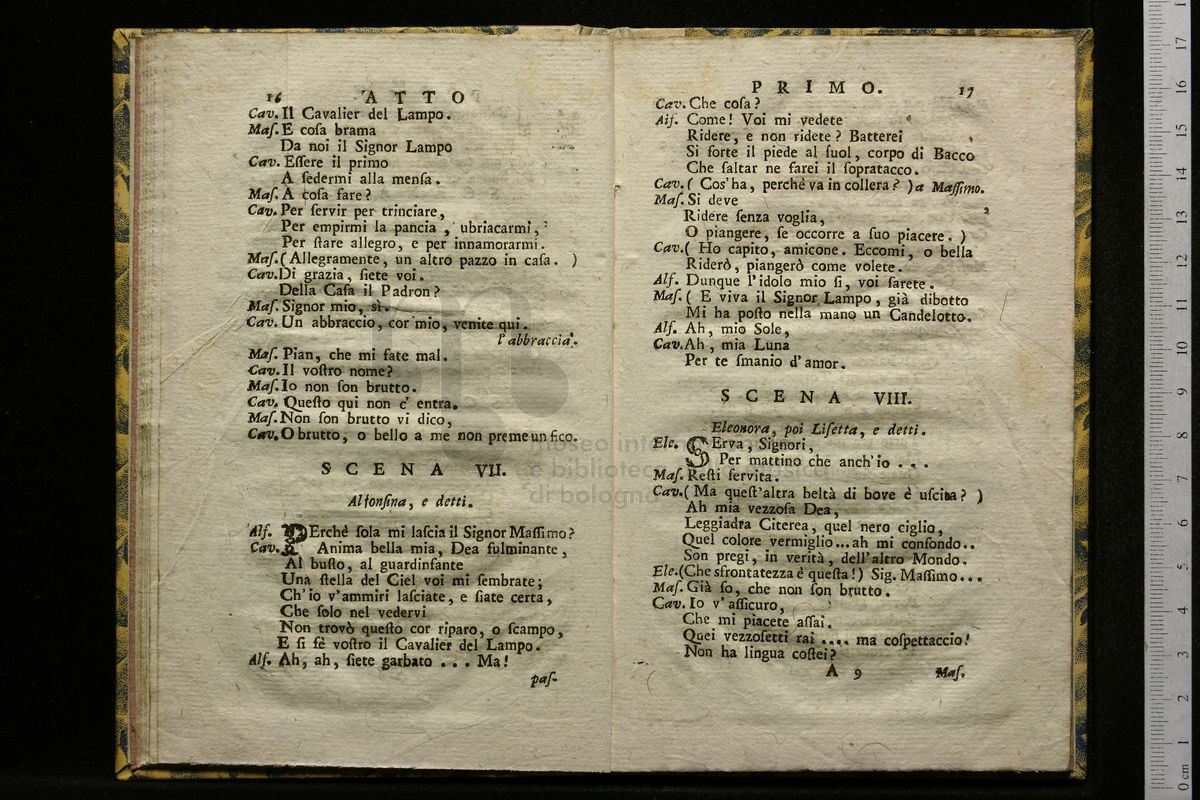 16 ATTO
Cav. Il Cavalier del Lampo.
Maſ. E coſa brama
Da noi il Signor Lampo
Cav. Eſſere il primo
A ſedermi alla menſa.
Maſ. A coſa fare?
Cav. Per ſervir per trinciare,
Per empirmi la pancia, ubriacarmi,
Per ſtare allegro, e per innamorarmi.
Maſ. ( Allegramente, un altro pazzo in caſa. )
Cav. Di grazia, ſiete voi.
Della Caſa il Padron?
Maſ. Signor mio, sì.
Cav. Un abbraccio, cor mio, venite qui.
l'abbraccia.
Maſ. Pian, che mi fate mal.
Cav. Il voſtro nome?
Maſ. Io non ſon brutto.
Cav. Queſto qui non c' entra.
Maſ. Non ſon brutto vi dico,
Cav. O brutto, o bello a me non preme un fico.
SCENA VII.
Alfonſina, e detti.
Alf. PErchè ſola mi laſcia il Signor Maſſimo?
Cav. Anima bella mia, Dea fulminante,
Al buſto, al guardinfante
Una ſtella del Ciel voi mi ſembrate;
Ch'io v'ammiri laſciate, e ſiate certa,
Che ſolo nel vedervi
Non trovò queſto cor riparo, o ſcampo,
E ſi fè voſtro il Cavalier del Lampo.
Alf. Ah, ah, ſiete garbato . . . Ma!
paſ-
PRIMO. 17
Cav. Che coſa?
Alf. Come! Voi mi vedete
Ridere, e non ridete? Batterei
Si forte il piede al ſuol, corpo di Bacco
Che ſaltar ne farei il ſopratacco.
Cav. ( Cos'ha, perchè va in collera? ) a Maſſimo.
Maſ. Si deve
Ridere ſenza voglia,
O piangere, ſe occorre a ſuo piacere. )
Cav. ( Ho capito, amicone. Eccomi, o bella
Riderò, piangerò come volete.
Alf. Dunque l'idolo mio ſi, voi ſarete.
Maſ. ( E viva il Signor Lampo, già dibotto
Mi ha poſto nella mano un Candelotto.
Alf. Ah, mio Sole,
Cav. Ah, mia Luna
Per te ſmanio d'amor.
SCENA VIII.
Eleonora, poi Liſetta, e detti.
Ele. SErva, Signori,
Per mattino che anch'io . . .
Maſ. Reſti ſervita.
Cav. ( Ma queſt'altra beltà di bove è uſcita? )
Ah mia vezzoſa Dea,
Leggiadra Citerea, quel nero ciglio,
Quel colore vermiglio...ah mi confondo..
Son pregi, in verità, dell'altro Mondo.
Ele. (Che sfrontatezza è queſta!) Sig. Maſſimo...
Maſ. Già ſo, che non ſon brutto.
Cav. Io v'aſſicuro,
Che mi piacete aſſai.
Quei vezzoſetti rai .... ma coſpettaccio!
Non ha lingua coſtei?
A 9 Maſ.